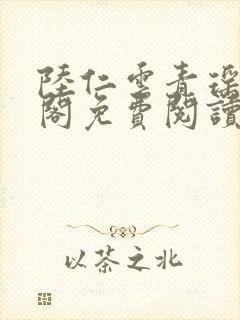 陸仁雲青瑶
閣免費閱讀
以茶之北